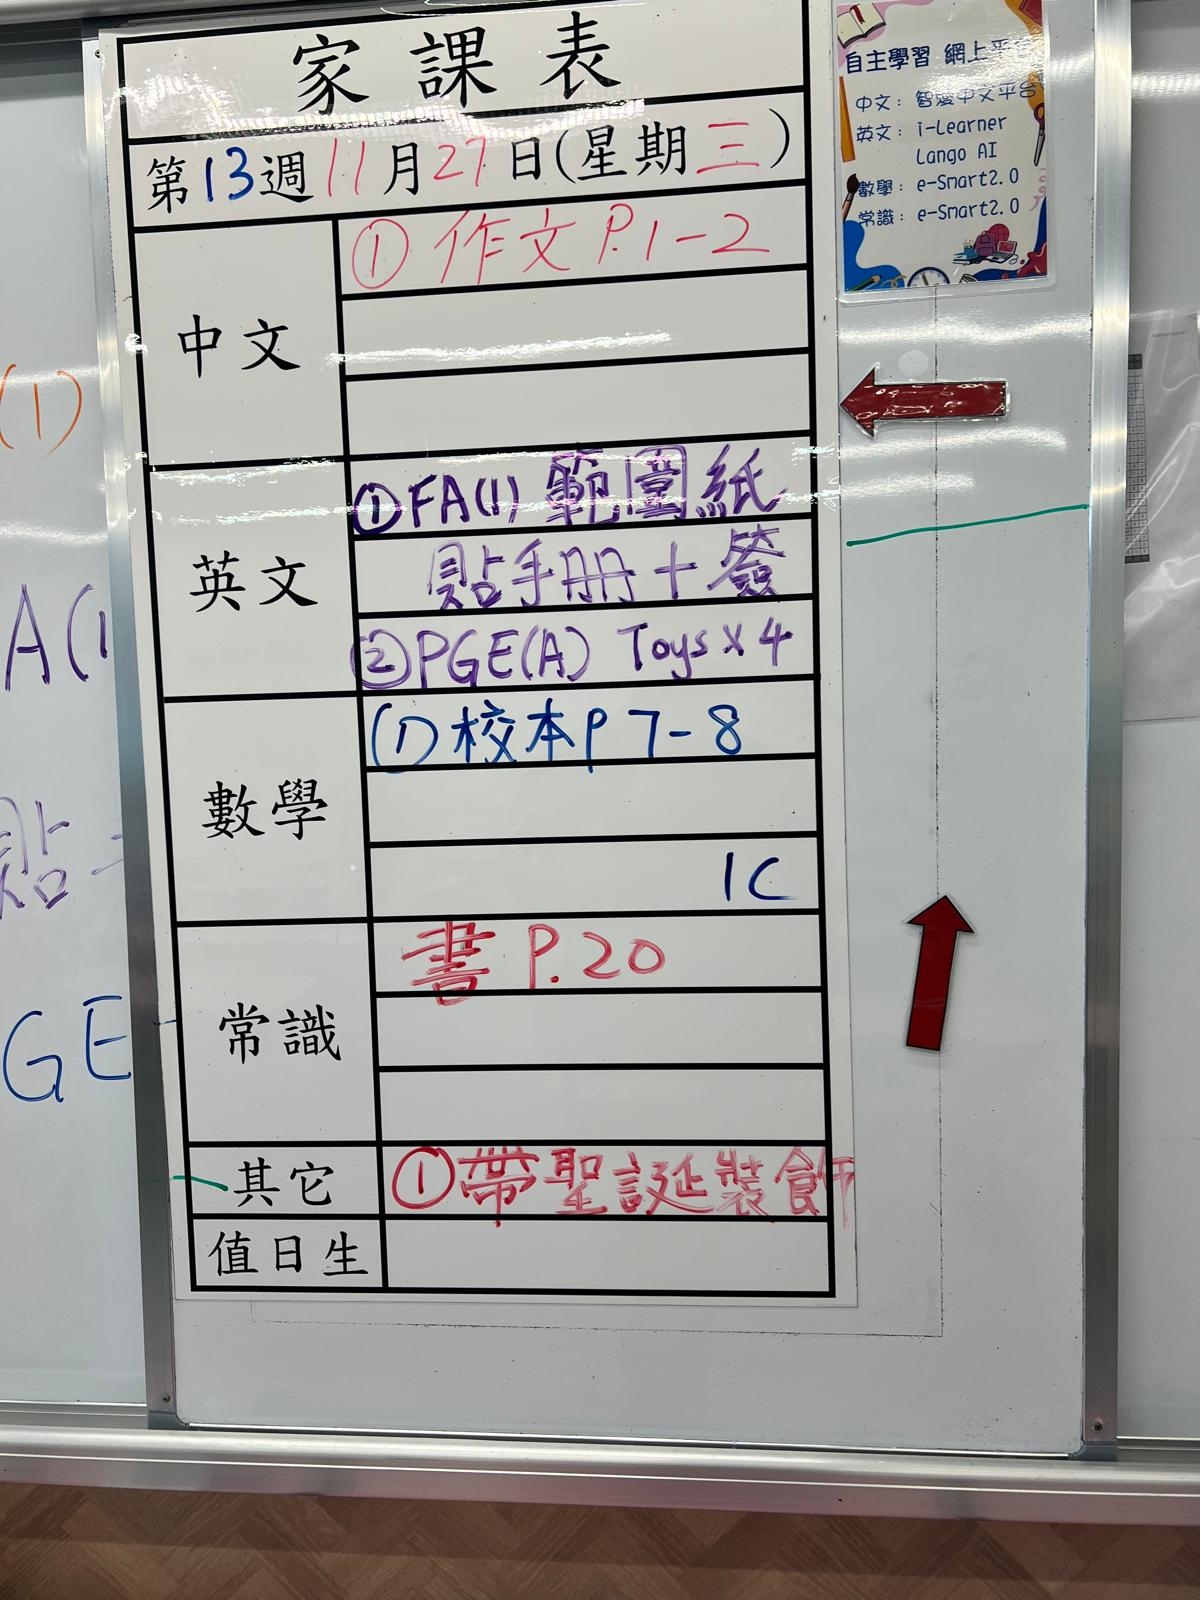 家課表
第13週11月27日(星期三)
中文
① 作文 P.1-2
英文
①FA(1) 範圍紙
貼手册+簽
②PGE(A) Toys x 4
數學
(1) 校本P 7-8
1C
常識
書 P.20
其它
①帶聖誕裝飾
值日生
自主學習 網上平
中文: 智愛中文平台
英文: i-Learner
Lango AI
數學: e-Smart2.0
常識: e-Smart2.0
(1)
A(1
貼
GE